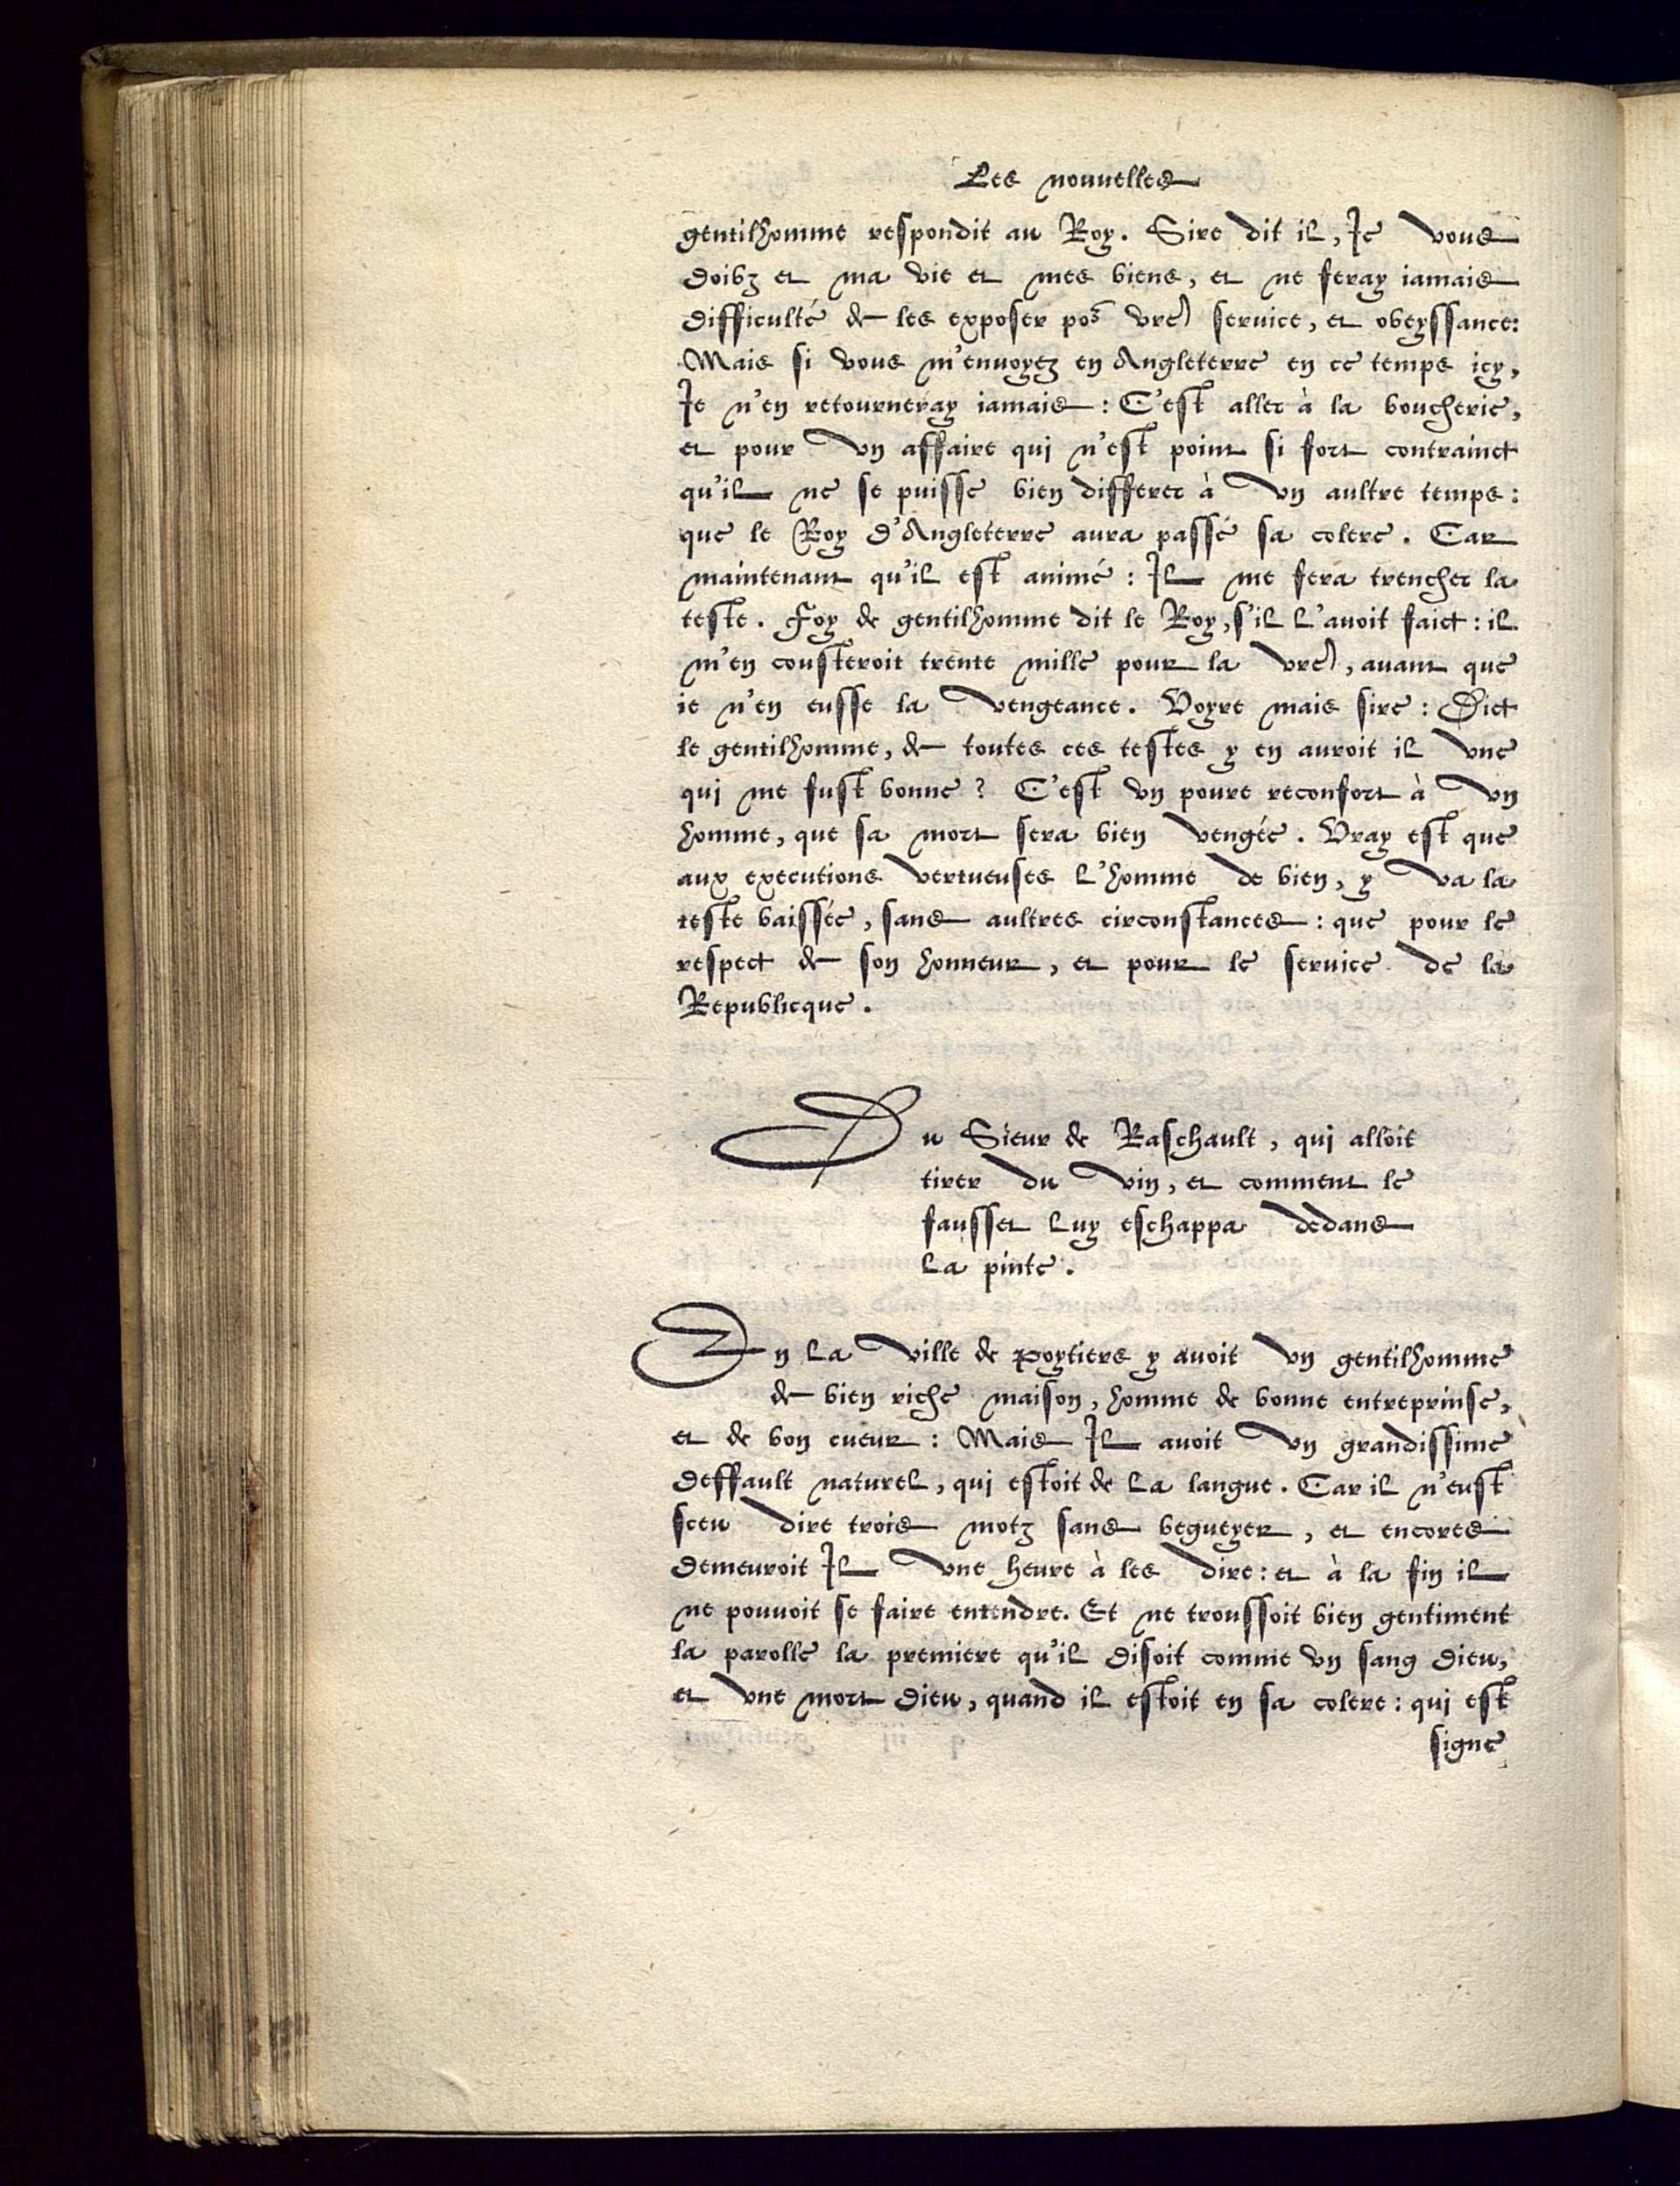 Les nouuelles
gentilhomme respondit au Roy. Sire dit il, Je vous
doibz et ma vie et mes biens, et ne feray iamais
difficulté de les exposer po^r vre seruice, et obeyssance:
Mais si vous m'enuoyez en Angleterre en ce temps icy,
Je n'en retourneray iamais: C'est aller à la boucherie,
et pour vn affaire qui n'est point si fort contrainct
qu'il ne se puisse bien differer à vn aultre temps:
que le Roy d'Angleterre aura passé sa colere. Car
maintenant qu'il est animé: Il me fera trencher la
teste. Foy de gentilhomme dit le Roy, s'il l'auoit faict: il
m'en cousteroit trente mille pour la vre, auant que
ie n'en eusse la vengeance. Voyre mais sire: Dict
le gentilhomme, de toutes ces testes y en auroit il vne
qui me fust bonne? C'est vn poure reconfort à vn
homme, que sa mort sera bien vengée. Vray est que
aux executions vertueuses l'homme de bien, y va la
teste baissée, sans aultres circonstances: que pour le
respect de son honneur, et pour le seruice de la
Republicque.
Du Sieur de Raschault, qui alloit
tirer du vin, et comment le
fausset luy eschappa dedans
la pinte.
En la ville de Poytiers y auoit vn gentilhomme
de bien riche maison, homme de bonne entreprinse,
et de bon cueur: Mais Il auoit vn grandissime
deffault naturel, qui estoit de la langue. Car il n'eust
sceu dire trois motz sans begueyer, et encores
demeuroit Il vne heure à les dire: et à la fin il
ne pouuoit se faire entendre. Et ne troussoit bien gentiment
la parolle la premiere qu'il disoit comme vn sang dieu,
et vne mort dieu, quand il estoit en sa colere: qui est
signe